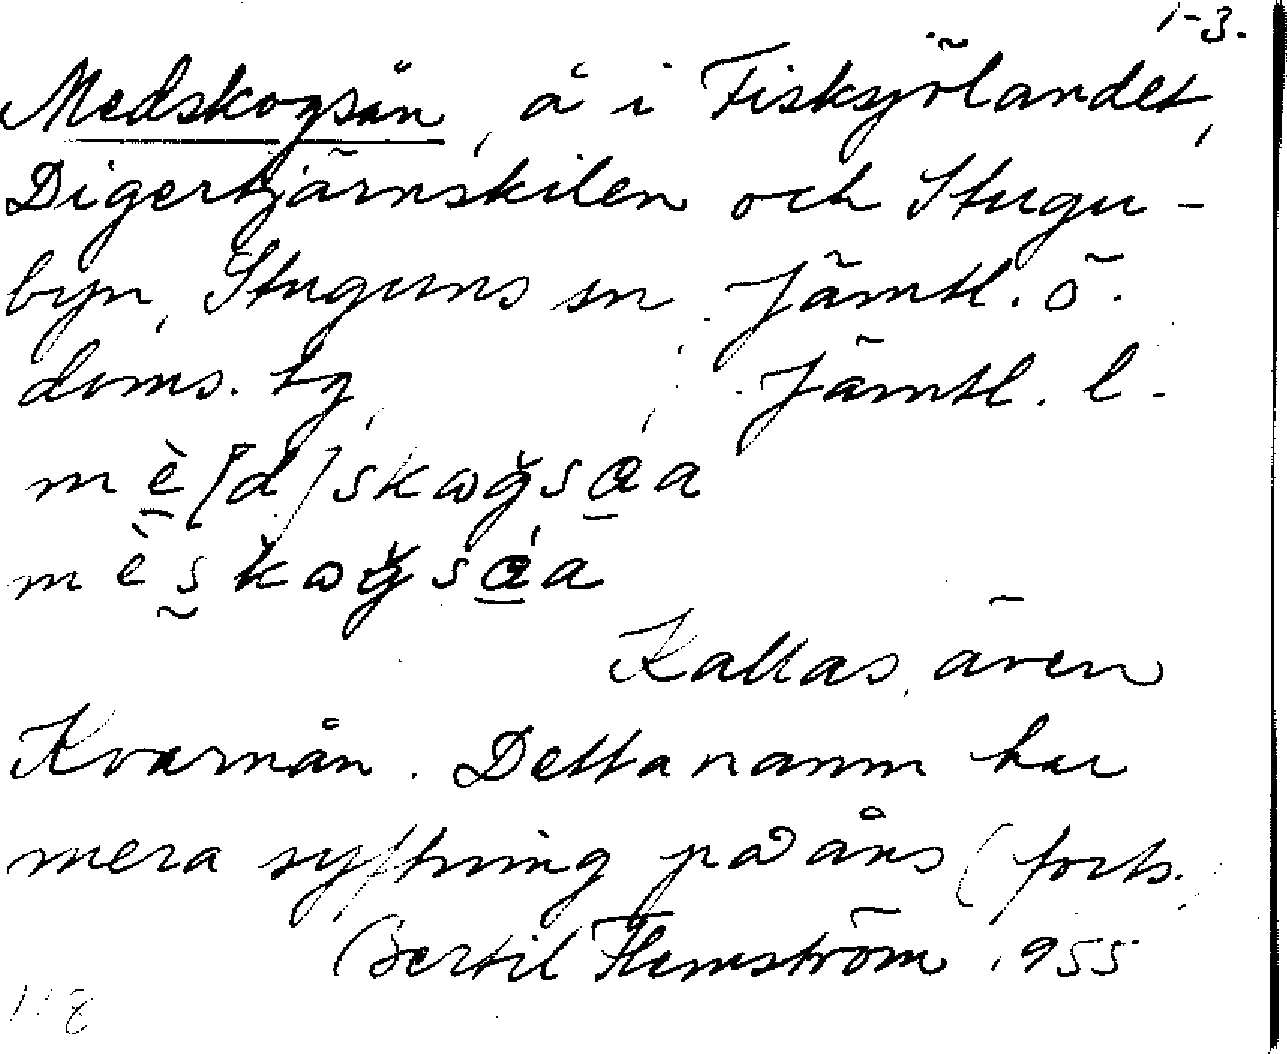 1-3.
Medskogsån, å i Fisksjölandet,
Digertjärnskilen och Stugu-
byn, Stuguns sn Jämtl. ö.
doms. tg, Jämtl. l.
mè[d]skωǥsα̲a
mèskωǥsά̲a
Kallas även
Kvarnån. Detta namn har
mera syftning på åns (forts.)
Bertil Flemström 1955